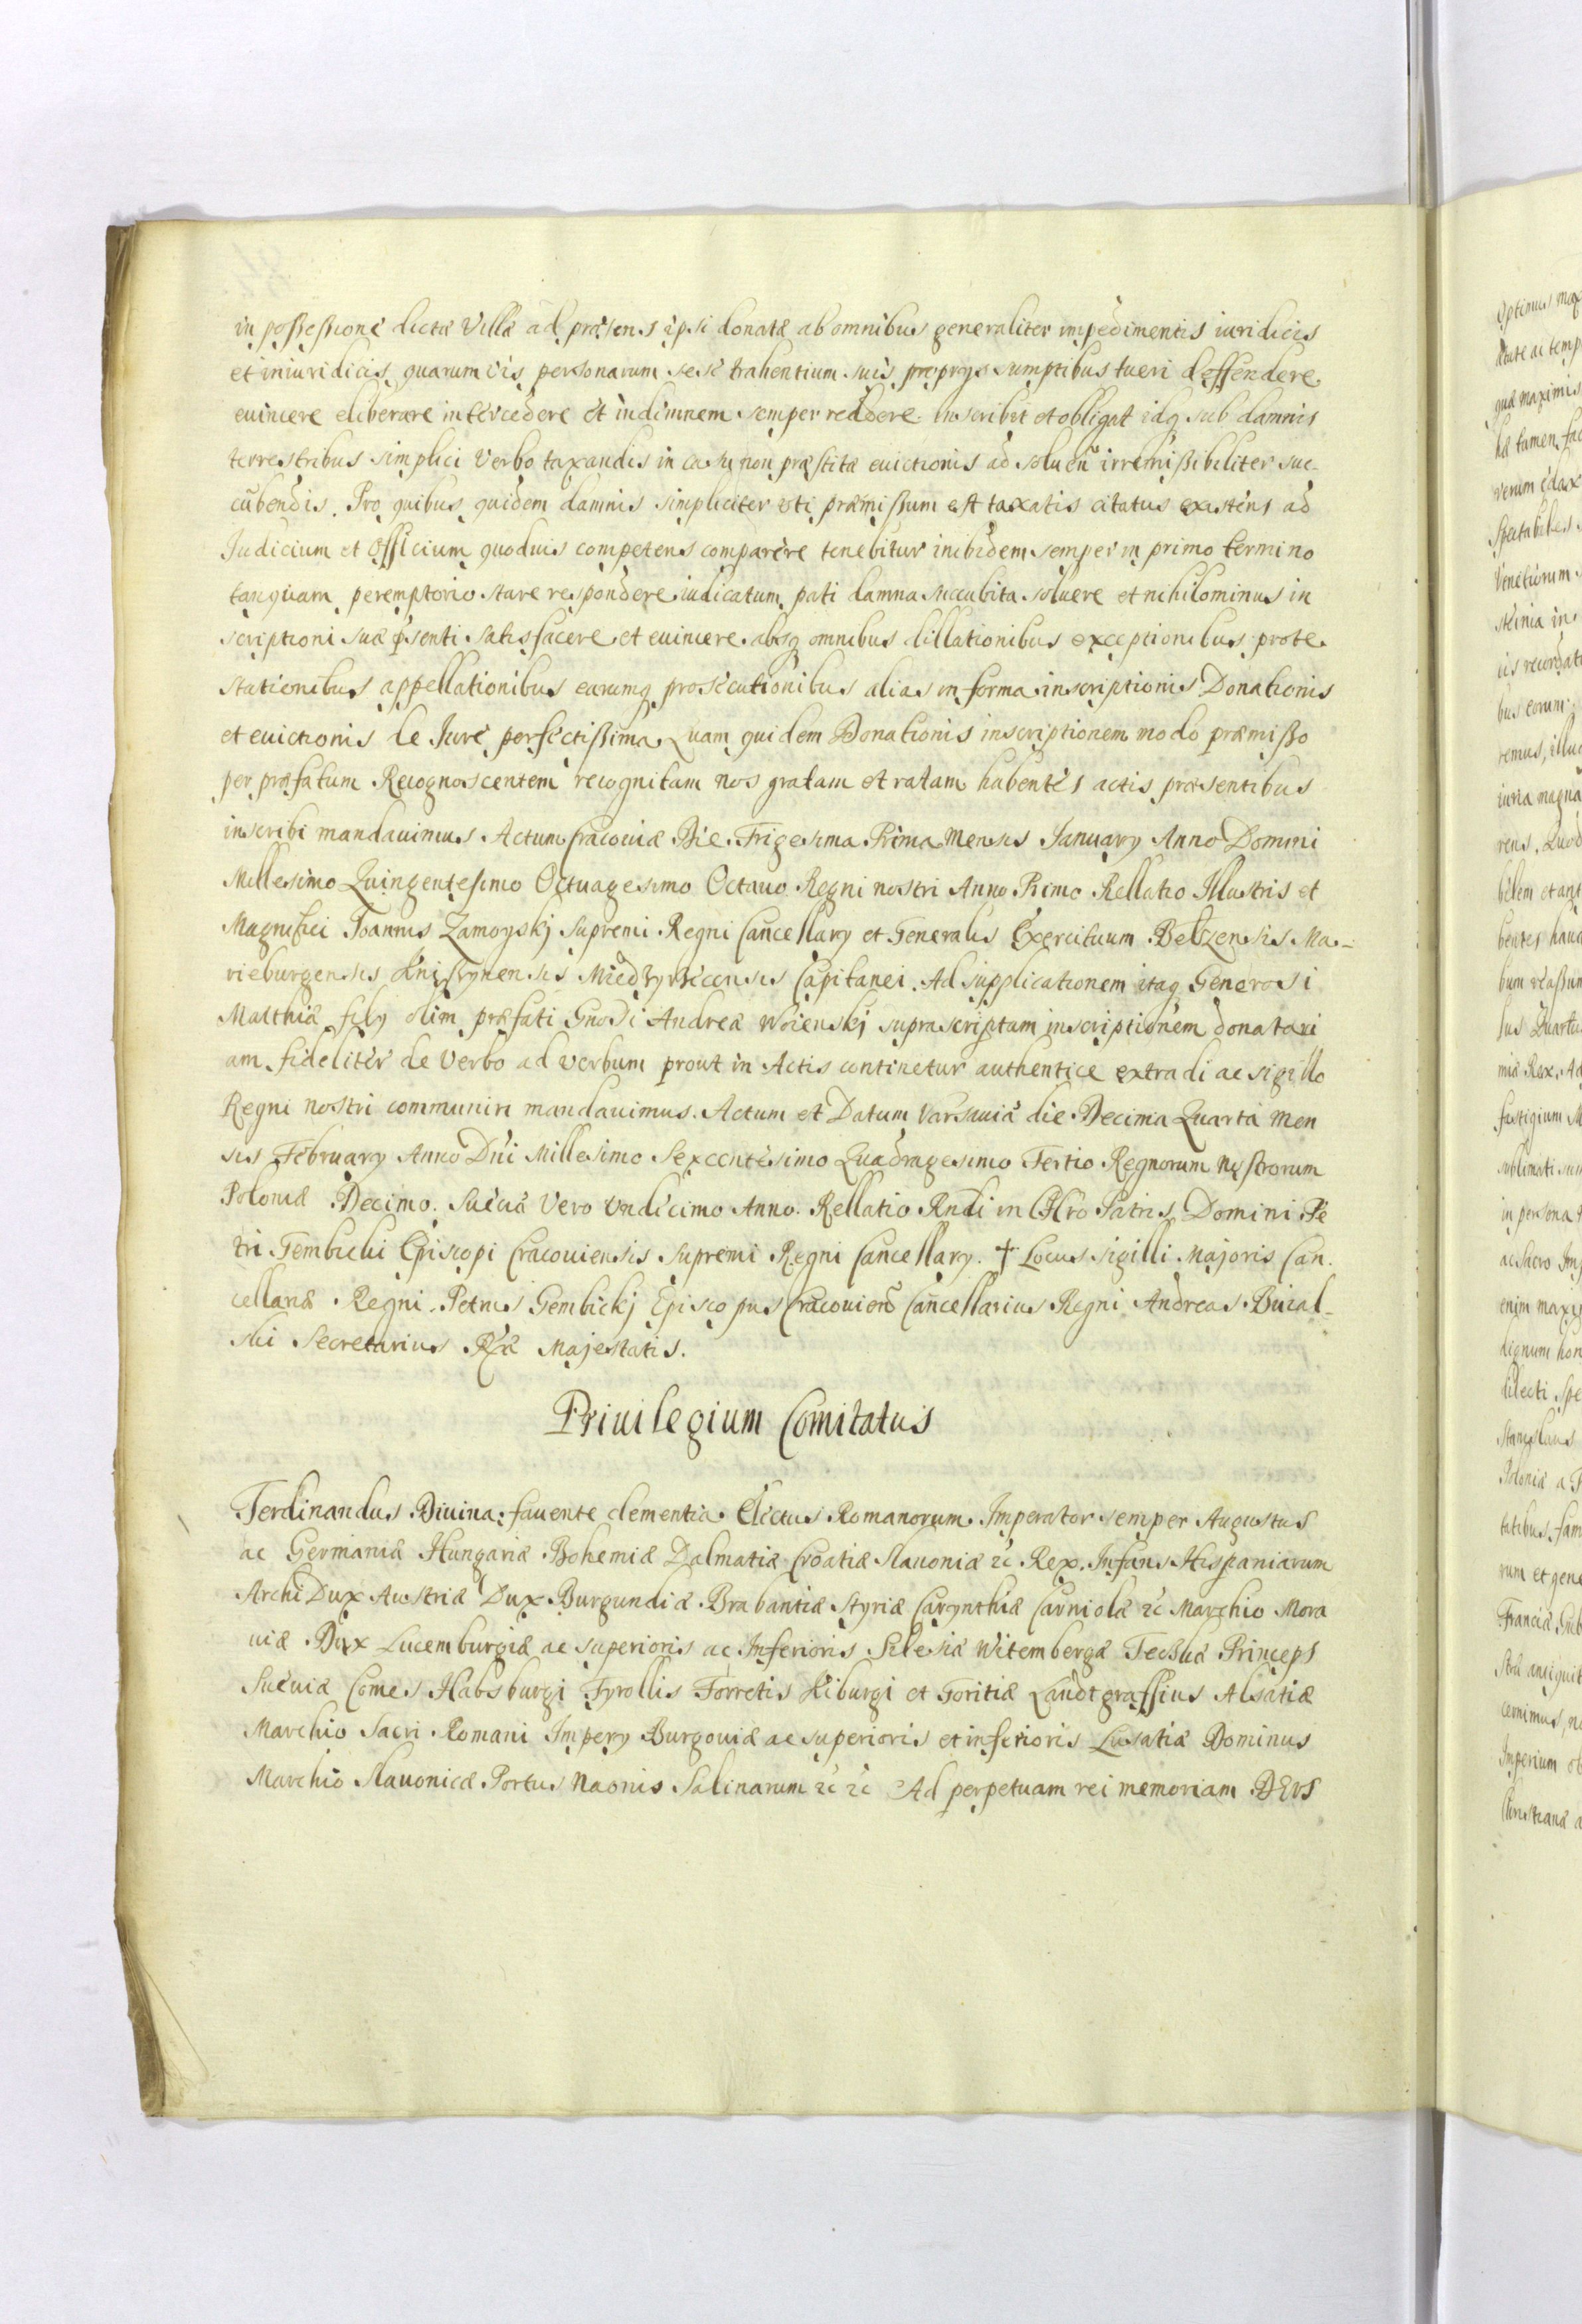 in possessione dictæ Villæ ad præsens ipsi donatæ ab omnibus generaliter impedimentis iuridicis
et iniuridicis quarumvis personarum sese trahentium suis proprys sumptibus tueri deffendere
euincere eliberare intercedere et indimnem semper reddere inscribit et obligat idq sub damnis
terrestribus simplici Verbo taxandis in casu non præstitæ euictionis ad soluen irremissibiliter suc-
cubendis. Pro quibus quidem damnis simpliciter uti præmissum est taxatis citatus existens ad
Iudicium et Officium quoduis competens comparere tenebitur inibidem semper in primo termino
tanquam peremptorio stare respondere iudicatum pati damna succubita soluere et nihilominus in
scriptioni suæ psenti satisfacere et euincere absq omnibus dillationibus exceptionibus prote
stationibus appellationibus earumq prosecutionibus alias in forma inscriptionis Donationis
et euictionis de Iure perfectissima Quam quidem Donationis inscriptionem modo præmisso
per præfatum Recognoscentem recognitam nos gratam et ratam habentes actis præsentibus
inscribi mandauimus. Actum Cracouiæ Die Trigesima Prima Mensis January Anno Domini
Millesimo Quingentesimo Octuagesimo Octauo Regni nostri Anno Primo Rellatio Illustris et
Magnifici Joannis Zamoyskj Supremi Regni Cancellary et Generalis Exercituum Belzensis Ma-
rieburgensis Knissynensis Miedzyrzecensis Capitanei. Ad supplicationem itaq Generosi
Matthiæ fily olim præfati Gnosi Andreæ Woienskj suprascriptam inscriptionem donatari
am fideliter de Verbo ad verbum prout in Actis continetur authentice extradi ac sigillo
Regni nostri communiri mandauimus. Actum et Datum Varsauiæ die Decima Quarta Men
sis February Anno Dni Millesimo Sexcentesimo Quadragesimo Tertio Regnorum Nostrorum
Poloniæ Decimo. Sueciæ Vero Undecimo Anno. Rellatio Rndi in Chro Patris Domini Pe
tri Gembicki Episcopi Cracouiensis Supremi Regni Cancellary. † Locus Sigilli Majoris Can.
cellariæ Regni. Petrus Gembickj Episcopus Cracouien Cancellarius Regni Andreas
ski Secretarius Majestatis.
Priuilegium Comitatus
Ferdinandus Diuina fauente clementia Electus Romanorum Imperator semper Augustus
ac Germaniæ Hungariæ Bohemiæ Dalmatiæ Croatiæ Slauoniæ &c Rex. Infans Hispaniarum
Archi Dux Austriæ Dux Burgundiæ Brabantiæ Styriæ Carynthiæ Carniolæ &c Marchio Mora
uiæ Dux Lucemburgiæ ac superioris ac Inferioris Silesiæ Witembergæ Princeps
Sueuiæ Comes Habsburgi Tyrollis Forretis Kiburgi et Goritiæ Landtgraffius Alsatiæ
Marchio Sacri Romani Impery Burgouiæ ac superioris et inferioris Lusatiæ Dominus
Marchio Slauonicæ Portus Naonis Salinarum &c &c Ad perpetuam rei memoriam DEVS